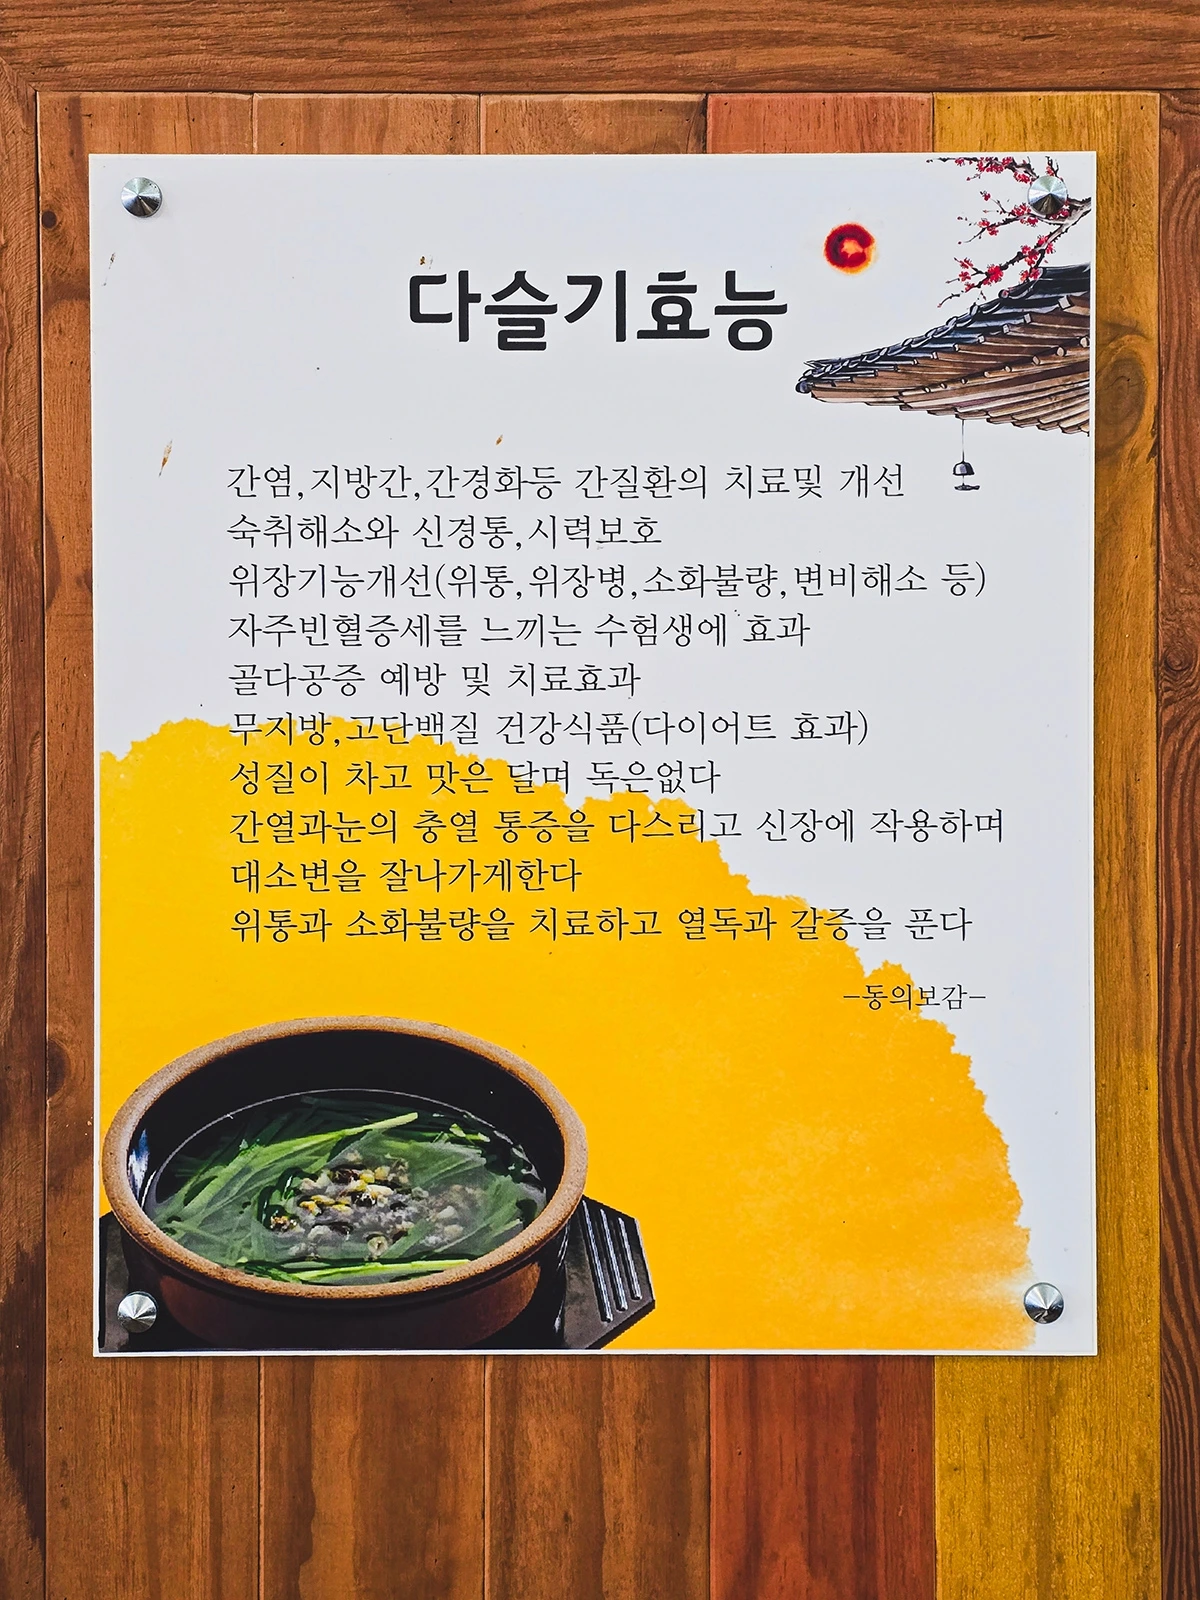 다슬기효능
간염,지방간,간경화등 간질환의 치료및 개선
숙취해소와 신경통,시력보호
위장기능개선(위통,위장병,소화불량,변비해소 등)
자주빈혈증세를 느끼는 수험생에 효과
골다공증 예방 및 치료효과
무지방,고단백질 건강식품(다이어트 효과)
성질이 차고 맛은 달며 독은없다
간열과눈의 충열 통증을 다스리고 신장에 작용하며
대소변을 잘나가게한다
위통과 소화불량을 치료하고 열독과 갈증을 푼다
-동의보감-